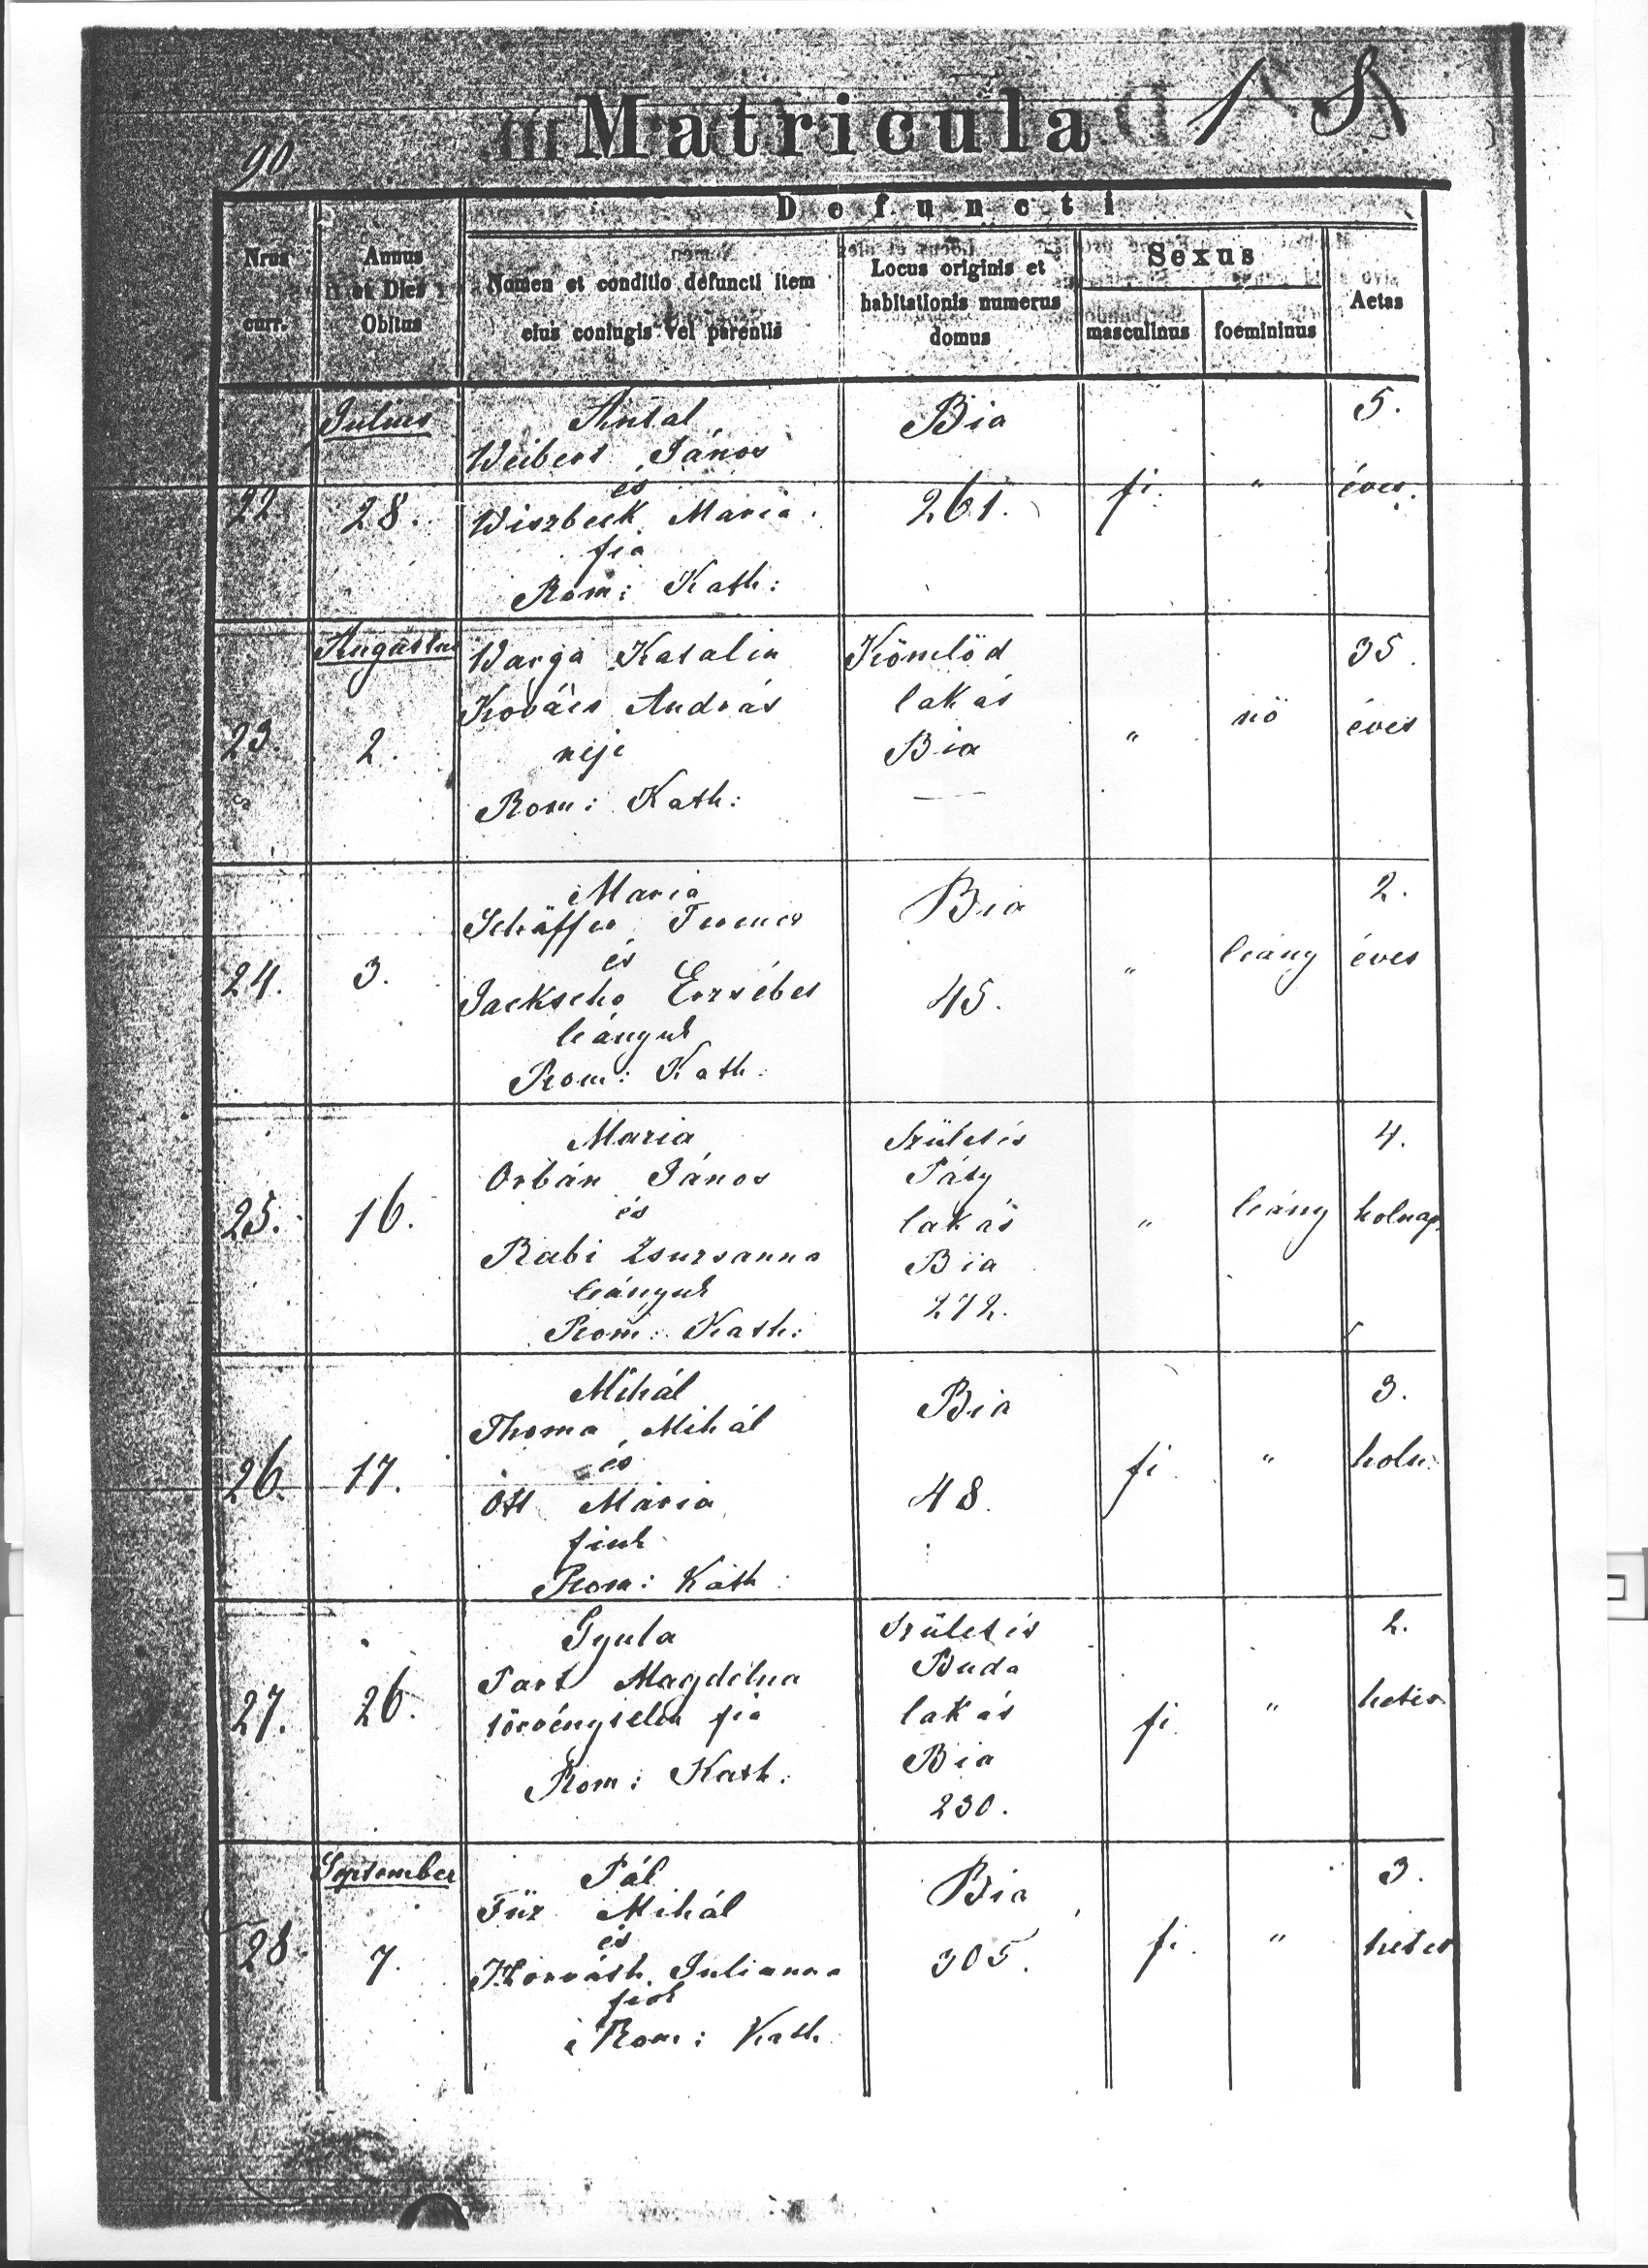 90
Matricula
1 8
Defuncti
Nrus
curr.
Annus
et Dies
Obitus
Nomen et conditio defuncti item
eius coniugis vel parentis
Locus originis et
habitationis numerus
domus
Sexus
masculinus
foemininus
Aetas
Julius
22
28.
Antal
Weibert János
és
Wiszbeck Mariá
fia
Rom: Kath:
Bia
261.
fi
"
5.
éves.
Augustus
23.
2.
Varga Katalin
Kovács András
neje
Rom: Kath:
Kömlöd
lakás
Bia
"
nö
35.
éves
24.
3.
Maria
Schäffer Ferencz
és
Jackscho Erzsébet
leányuk
Rom: Kath:
Bia
45.
"
leány
2.
éves
25.
16.
Maria
Orbán János
és
Rabi Zsuzsanna
leányuk
Rom: Kath:
Születés
Páty
lakás
Bia
272.
"
leány
4.
holnap.
26.
17.
Mihál
Thoma Mihál
és
Ott Maria
fiuk
Rom: Kath:
Bia
48.
fi
"
3.
holn:
27.
26.
Gyula
Part Magdolna
törvénytelen fia
Rom: Kath:
Születés
Buda
lakás
Bia
230.
fi
"
2.
hetes
September
28
7.
Pál
Für Mihál
és
Horváth Julianna
fiok
Rom: Kath
Bia
305.
fi.
"
3.
hetes